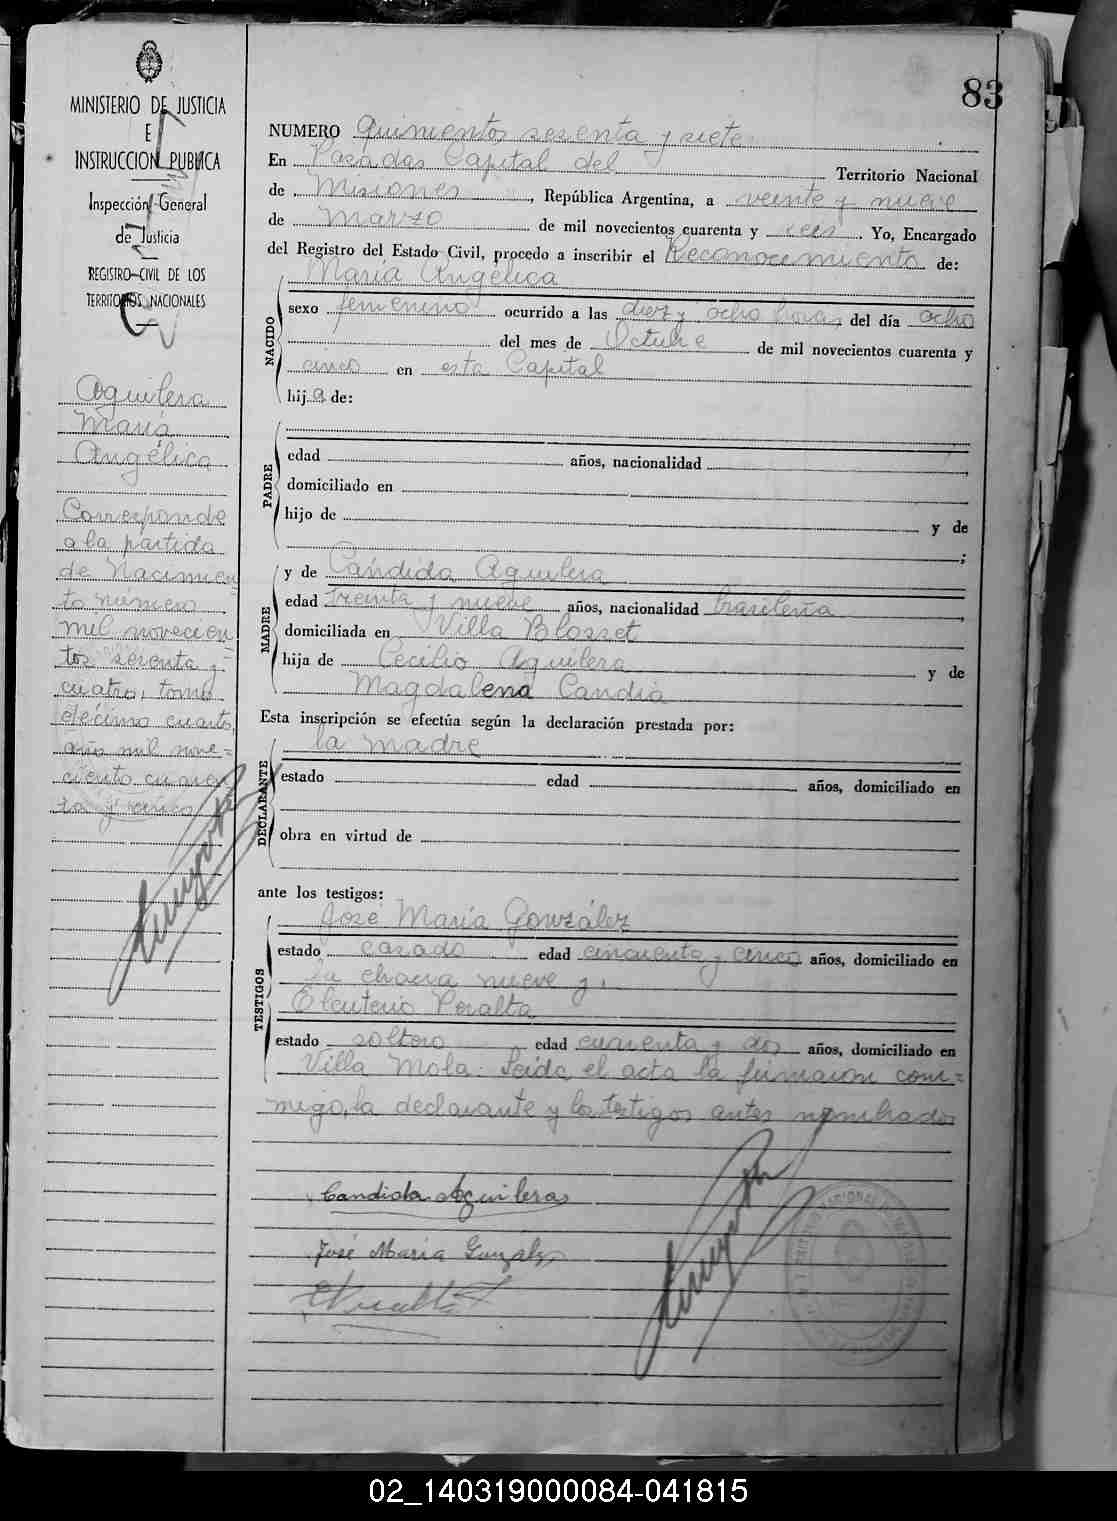 83
MINISTERIO DE JUSTICIA
E
INSTRUCCION PUBLICA
Inspección General
de Justicia
REGISTRO CIVIL DE LOS
TERRITORIOS NACIONALES
Aguilera
María
Angélica
Corresponde
a la partida
de Nacimien
to número
mil novecien
tos sesenta y
cuatro, tomo
décimo cuarto,
año mil nove=
ciento cuaren
ta y cinco
NUMERO Quinientos sesenta y siete
En Posadas Capital del Territorio Nacional
de Misiones, República Argentina, a veinte y nueve
de Marzo de mil novecientos cuarenta y seis. Yo, Encargado
del Registro del Estado Civil, procedo a inscribir el Reconocimiento de:
María Angélica
NACIDO
sexo femenino ocurrido a las diez y ocho horas, del día ocho
del mes de Octubre de mil novecientos cuarenta y
cinco en esta Capital
hija de:
PADRE
edad años, nacionalidad
domiciliado en
hijo de y de
;
MADRE
y de Cándida Aguilera
edad treinta y nueve años, nacionalidad brasileña
domiciliada en Villa Blosset
hija de Cecilio Aguilera y de
Magdalena Candia
Esta inscripción se efectúa según la declaración prestada por:
la madre
DECLARANTE
estado edad años, domiciliado en
obra en virtud de
ante los testigos:
José María González
TESTIGOS
estado casado edad cincuenta y cinco años, domiciliado en
la chacra nueve y
Eleuterio Peralta
estado soltero edad cuarenta y dos años, domiciliado en
Villa Mola. Leída el acta la firmaron con=
migo, la declarante y los testigos antes nombrados
Candida Aguilera
José María Gonzalez
02_140319000084-041815